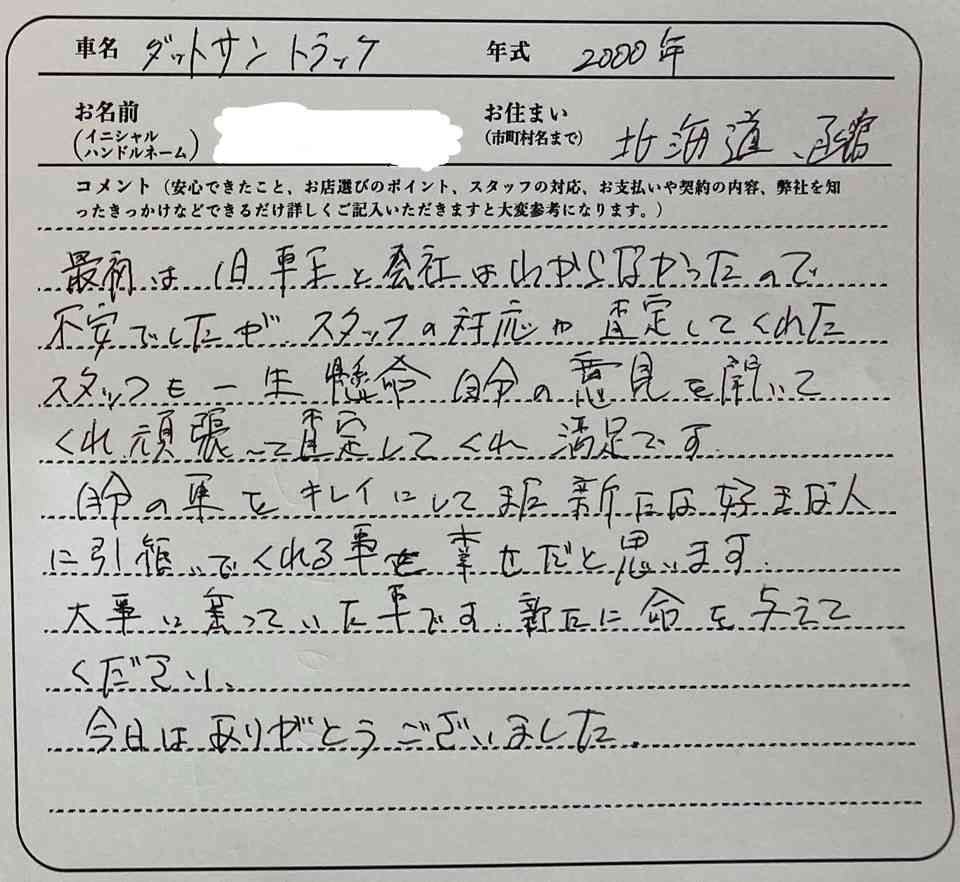 車名 ダットサン トラック 年式 2000年
お名前 お住まい
(イニシャル ハンドルネーム) (市町村名まで) 北海道、函館
コメント(安心できたこと、お店選びのポイント、スタッフの対応、お支払いや契約の内容、弊社を知
ったきっかけなどできるだけ詳しくご記入いただきますと大変参考になります。)
最初は旧車王と会社はわからなかったので
不安でしたが、スタッフの対応や査定してくれた
スタッフも一生懸命自分の意見を聞いて
くれ頑張って査定してくれ満足です。
自分の車をキレイにしてまた新たな好きな人
に引継いでくれる事を幸せだと思います。
大事に乗っていた車です。新たに命を与えて
ください。
今日はありがとうございました。